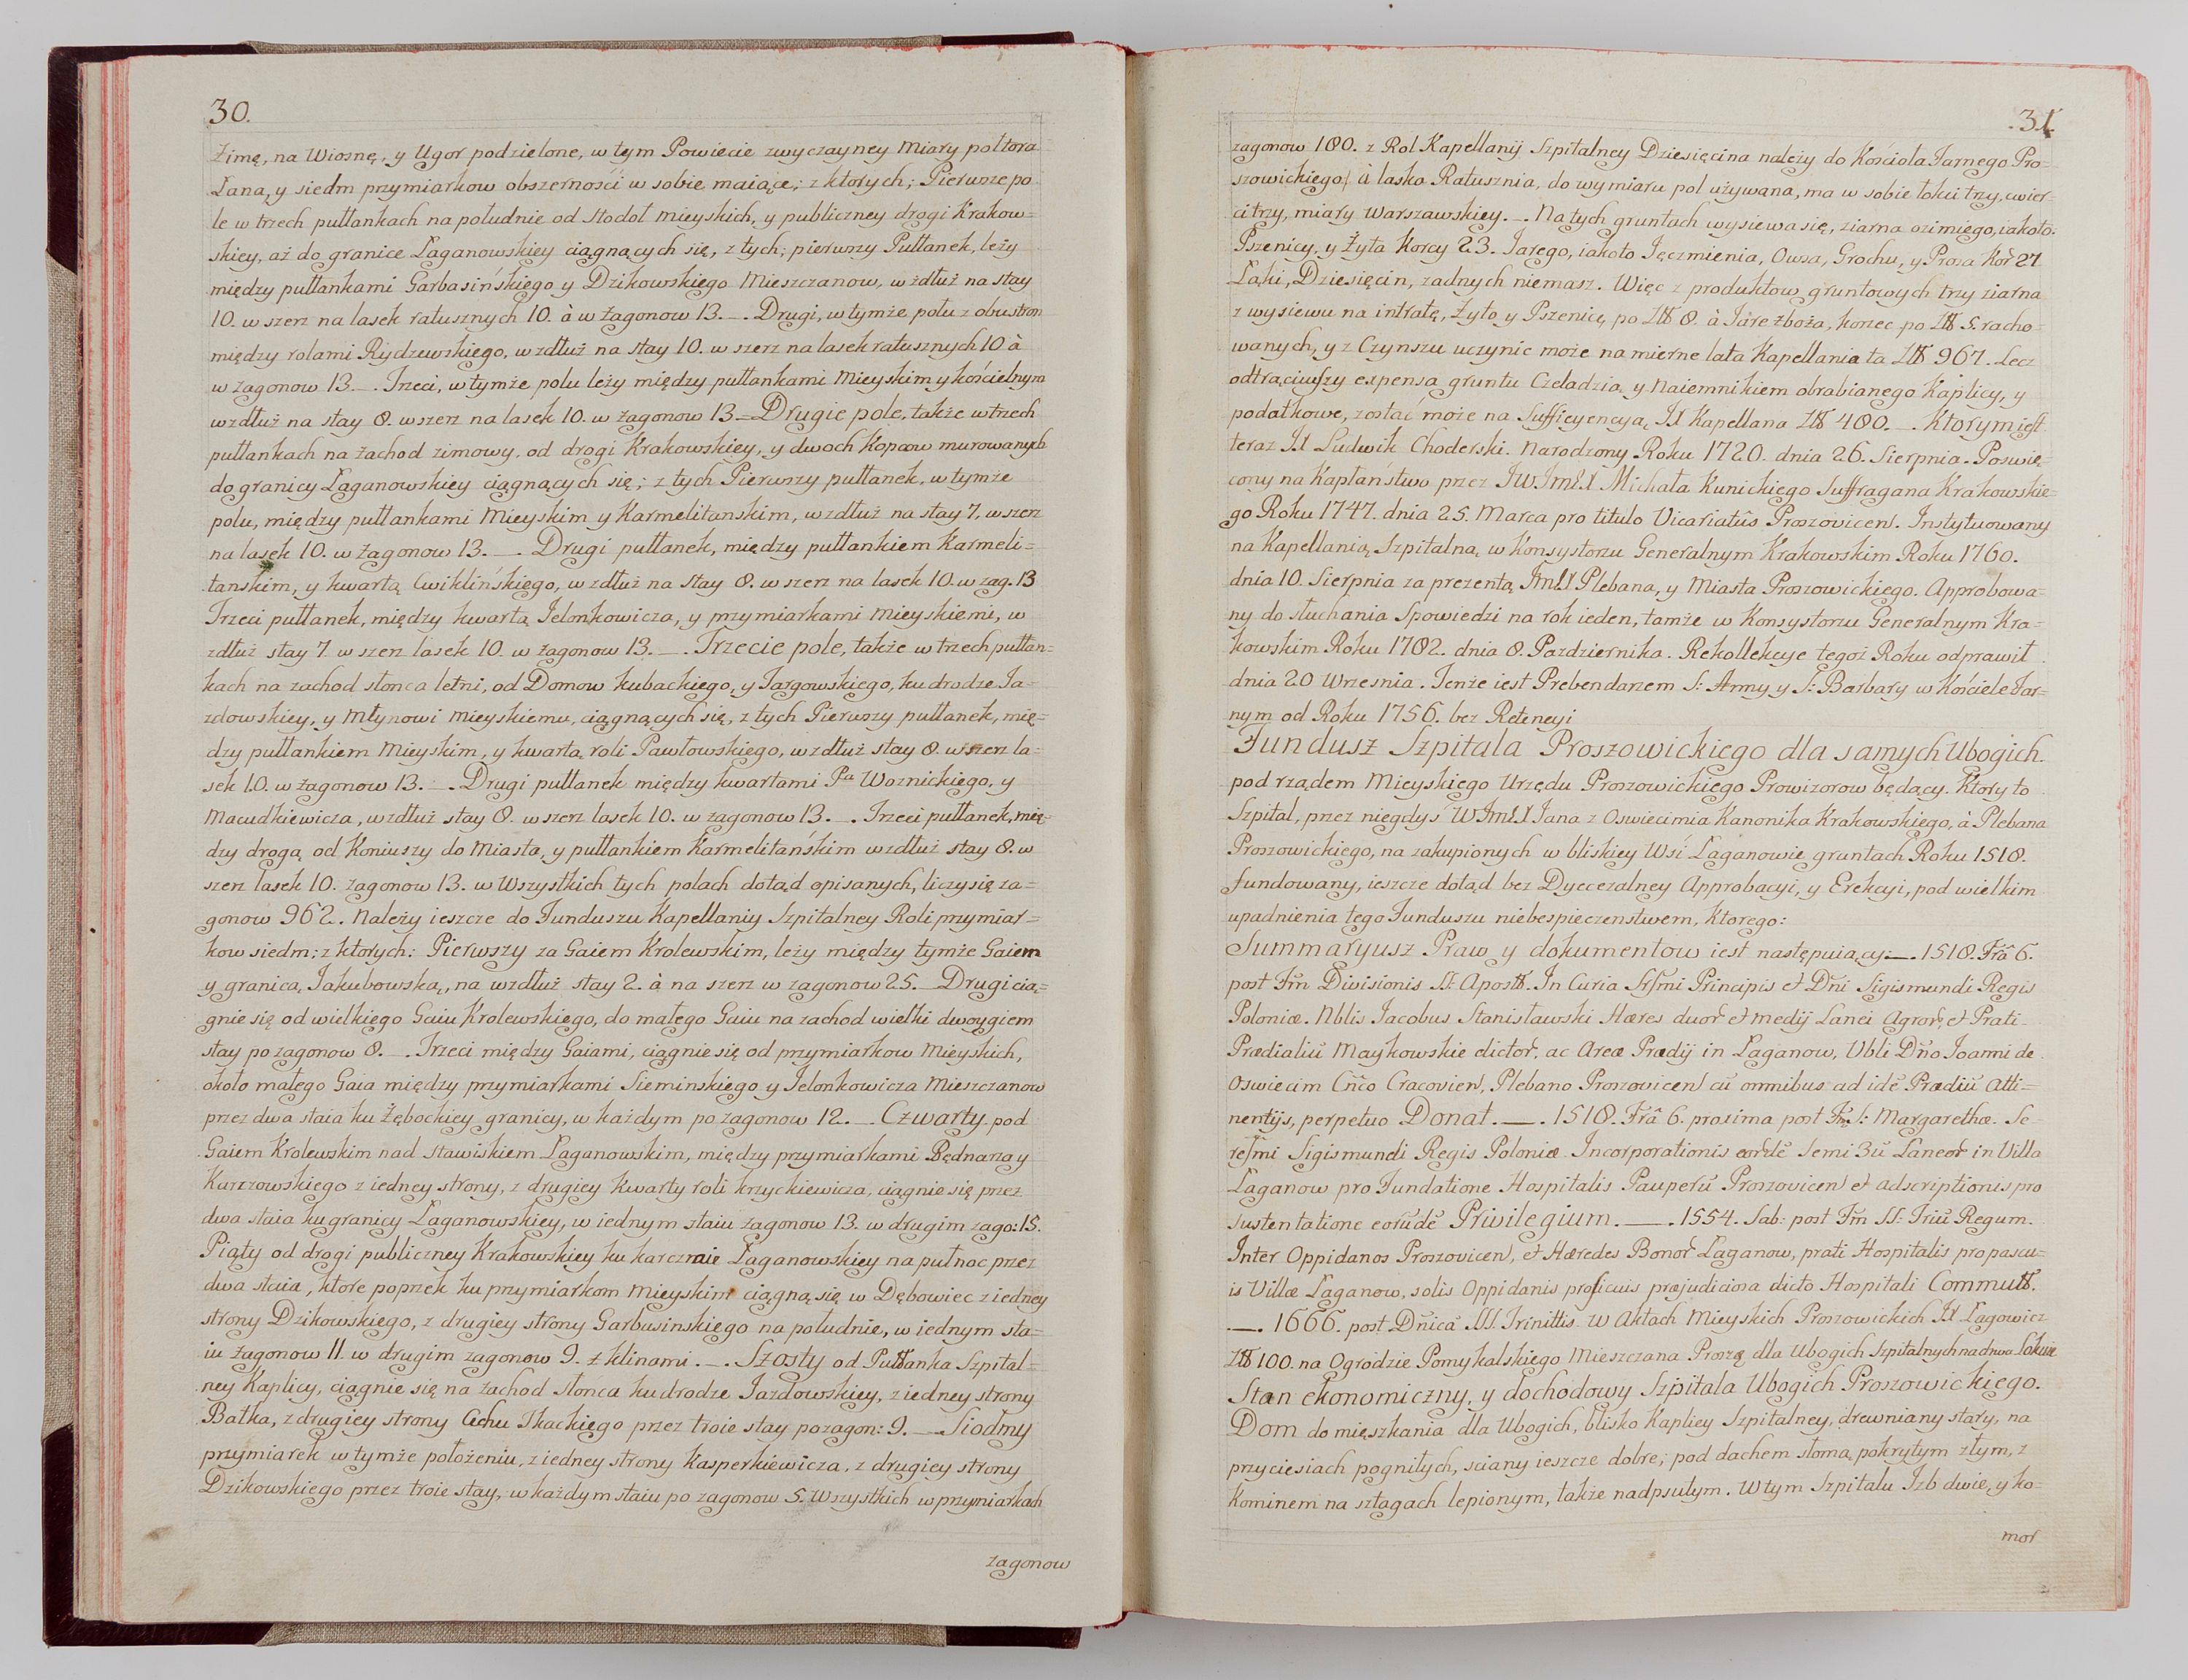 30.
Zimę, na Wiosnę, y Ugor podzielone, w tym Powiecie zwyczayney Miary poltora
Łana, y siedm przymiarkow obszerności w sobie maiące; z ktorych; Pierwsze po
le w trzech pułtankach na południe od stodoł mieyskich, y publiczney drogi Krakow=
skiey, aż do granice Łaganowskiey ciągnących się, z tych; pierwszy Pułtanek, leży
między pułtankami Garbasińskiego y Dzikowskiego Mieszczanow, w zdłuż na stay
10. w szerz na lasek ratusznych 10. à w Zagonow 13. _. Drugi, w tymże polu z obustron
między rolami Rydzewskiego, w zdłuż na stay 10. w szerz na lasek ratusznych 10 à
w zagonow 13 _. Trzeci, w tymże polu leży między pułtankami Mieyskim y kościelnym
wzdłuż na stay 8. w szerz na lasek 10. w Zagonow 13 _ Drugie pole, także w trzech
pułtankach na zachod zimowy, od drogi Krakowskiey, y dwoch Kopcow murowanych
do granicy Łaganowskiey ciągnących się; z tych Pierwszy pułtanek, w tymże
polu, między pułtankami Mieyskim y Karmelitanskim, w zdłuż na stay 7, w szerz
na lasek 10. w Zagonow 13. _. Drugi pułtanek, między pułtankiem Karmeli=
tanskim, y kwartą Cwiklińskiego, w zdłuż na stay 8. w szerz na lasek 10. w zag. 13
Trzeci pułtanek, między kwartą Jelonkowicza, y przymiarkami Mieyskiemi, w
zdłuż stay 7 w szerz lasek 10. w zagonow 13. _. Trzecie pole, także w trzech pułtan=
kach na zachod słonca letni, od Domow Kubackiego, y Targowskiego, ku drodze Ja=
zdowskiey, y Młynowi Mieyskiemu, ciągnących się, z tych Pierwszy pułtanek, mię=
dzy pułtankiem Mieyskim, y kwartą roli Pawłowskiego, w zdłuż stay 8. w szerz la=
sek 10. w zagonow 13. _. Drugi pułtanek między kwartami Pa Woznickiego, y
Macudkiewicza, w zdłuż stay 8. w szerz lasek 10. w zagonow 13. _. Trzeci pułtanek, mię=
dzy drogą od Koniuszy do Miasta, y pułtankiem Karmelitańskim w zdłuż stay 8. w
szerz lasek 10. zagonow 13. w Wszystkich tych polach dotąd opisanych, liczy się za=
gonow 962. Należy ieszcze do Funduszu Kapellaniy Szpitalney Roli przymiar=
kow siedm; z ktorych: Pierwszy za Gaiem Krolewskim, leży między tymże Gaiem
y granicą Jakubowską, na wzdłuż stay 2. à na szerz w zagonow 25. _ Drugi cią=
gnie się od wielkiego Gaiu Krolewskiego, do małego Gaiu na zachod wielki dwoygiem
stay po zagonow 8. _. Trzeci między Gaiami, ciągnie się od przymiarkow Mieyskich,
około małego Gaia między przymiarkami Sieminskiego y Jelonkowicza Mieszczanow
przez dwa staia ku Żębockiey granicy, w każdym po zagonow 12. _. Czwarty pod
Gaiem Krolewskim nad stawiskiem Łaganowskim, między przymiarkami Będnarza y
Karczowskiego z iedney strony, z drugiey Kwarty roli Krzyckiewicza, ciągnie się przez
dwa staia ku granicy Łaganowskiey, w iednym staiu zagonow 13. w drugim zago: 15.
Piąty od drogi publiczney Krakowskiey ku karczmie Łaganowskiey na pułnoc przez
dwa staia, ktore poprzek ku przymiarkom Mieyskim ciągną się w Dębowiec z iedney
strony Dzikowskiego, z drugiey strony Garbusinskiego na południe, w iednym sta=
iu zagonow 11. w drugim zagonow 9. z klinami. _. Szosty od Pułtanka Szpital=
ney Kaplicy, ciągnie się na Zachod Słonca ku drodze Jazdowskiey, z iedney strony
Bałka, z drugiey strony Cechu Tkackiego przez troie stay po zagon: 9. _. Siodmy
przymiarek w tymże położeniu, z iedney strony Kasperkiewicza, z drugiey strony
Dzikowskiego przez troie stay, w każdym staiu po zagonow 5. Wszystkich w przymiarkach
zagonow
.31.
zagonow 180. z Rol Kapellanij Szpitalney Dziesięcina należy do Kościoła Farnego Pro=
szowickiego à laska Ratusznia, do wymiaru pol używana, ma w sobie łokci trzy, cwier=
ci trzy, miary Warszawskiey. _. Na tych gruntach wysiewa się, ziarna ozimiego, iakoto:
Pszenicy, y Żyta Korcy 23. Jarego, iakoto Jęczmienia, Owsa, Grochu, y Prosa Kor 27
Łąki, Dziesięcin, zadnych niemasz. Więc z produktow gruntowych trzy ziarna
z wysiewu na intratę, Żyto y Pszenicę po Złł 8. à Jare zboża, korzec po Złł 5. racho=
wanych, y z Czynszu uczynic może na mierne lata Kapellania ta Złł 967. Lecz
odtrąciwszy expensa gruntu Czeladzią y Naiemnikiem obrabianego Kaplicy, y
podatkowe, zostać może na Sufficyencyą JX Kapellana Złł 480. _. Ktorym iest
teraz JX Ludwik Choderski. Narodzony Roku 1720. dnia 26. Sierpnia. Poswię=
cony na Kapłaństwo przez JWJmX Michała Kunickiego Suffragana Krakowskie=
go Roku 1747. dnia 25. Marca pro titulo Vicariatûs Proszovicen. Instytuowany
na Kapellanią Szpitalną w Konsystorzu Generalnym Krakowskim Roku 1760.
dnia 10. Sierpnia za prezentą JmX Plebana, y Miasta Proszowickiego. Approbowa=
ny do słuchania Spowiedzi na rok ieden, tamże w Konsystorzu Generalnym Kra=
kowskim Roku 1782. dnia 8. Pazdziernika. Rekollekcye tegoż Roku odprawił
dnia 20 Wrzesnia. Tenże iest Prebendarzem S: Anny y S: Barbary w Kościele Far=
nym od Roku 1756. bez Retencyi
Fundusz Szpitala Proszowickiego dla samych Ubogich.
pod rządem Mieyskiego Urzędu Proszowickiego Prowizorow będący. Ktory to
Szpital, przez niegdyś WJmX Jana z Oswiecimia Kanonika Krakowskiego, à Plebana
Proszowickiego, na zakupionych w bliskiey Wsi Łaganowie gruntach Roku 1518.
fundowany, ieszcze dotąd bez Dyecezalney Approbacyi, y Erekcyi, pod wielkim
upadnienia tego Funduszu niebespieczenstwem, Ktorego:
Summaryusz Praw y dokumentow iest następuiący: _. 1518. Frâ 6.
post Fm Divisionis SS: Apostłł. In Curia Srsmi Principis et Dñi Sigismundi Regis
Poloniæ. Nblis Jacobus Stanisławski Hæres duor et medij Lanei Agror, et Prati
Prædialiũ Maykowskie dictor, ac Areæ Prædij in Łaganow, Vbli Dño Joanni de
Oswiecim Cñco Cracovien, Plebano Proszovicen cũ omnibus ad idẽ Prædiũ Atti=
nentijs, perpetuo Donat. _. 1518. Frâ 6. proxima post Fm S: Margarethæ. Se=
resmi Sigismundi Regis Poloniæ Incorporationis eordẽ semi 3ũ Laneor in Villa
Łaganow pro Fundatione Hospitalis Pauperũ Proszovicen et adscriptionis pro
sustentatione eorũdẽ Privilegium. _. 1554. Sab: post Fm SS: Triũ Regum.
Inter Oppidanos Proszovicen, et Hæredes Bonor Łaganow, prati Hospitalis pro pascu=
is Villæ Łaganow, solis Oppidanis proficuis præjudiciosa dicto Hospitali Commutt.
_. 1666. post Dñicâ SSS. Trinittis w Aktach Mieyskich Proszowickich JX Łagowicz
Złł 100. na Ogrodzie Pomykalskiego Mieszczana Proszę dla Ubogich Szpitalnych na drwa Lokuie
Stan ekonomiczny, y dochodowy Szpitala Ubogich Proszowickiego.
Dom do mięszkania dla Ubogich, blisko Kaplicy Szpitalney, drewniany stary, na
przyciesiach pognitych, sciany ieszcze dobre; pod dachem słomą pokrytym złym, z
Kominem na sztagach lepionym, także nadpsutym. W tym Szpitalu Izb dwie, y ko=
mor